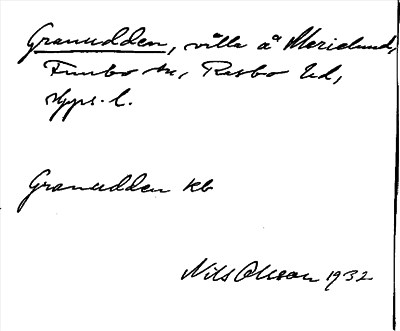 Granudden, villa å Marielund,
Funbo sn, Rasbo hd,
Upps. l.
Granudden kb
Nils Olsson 1932